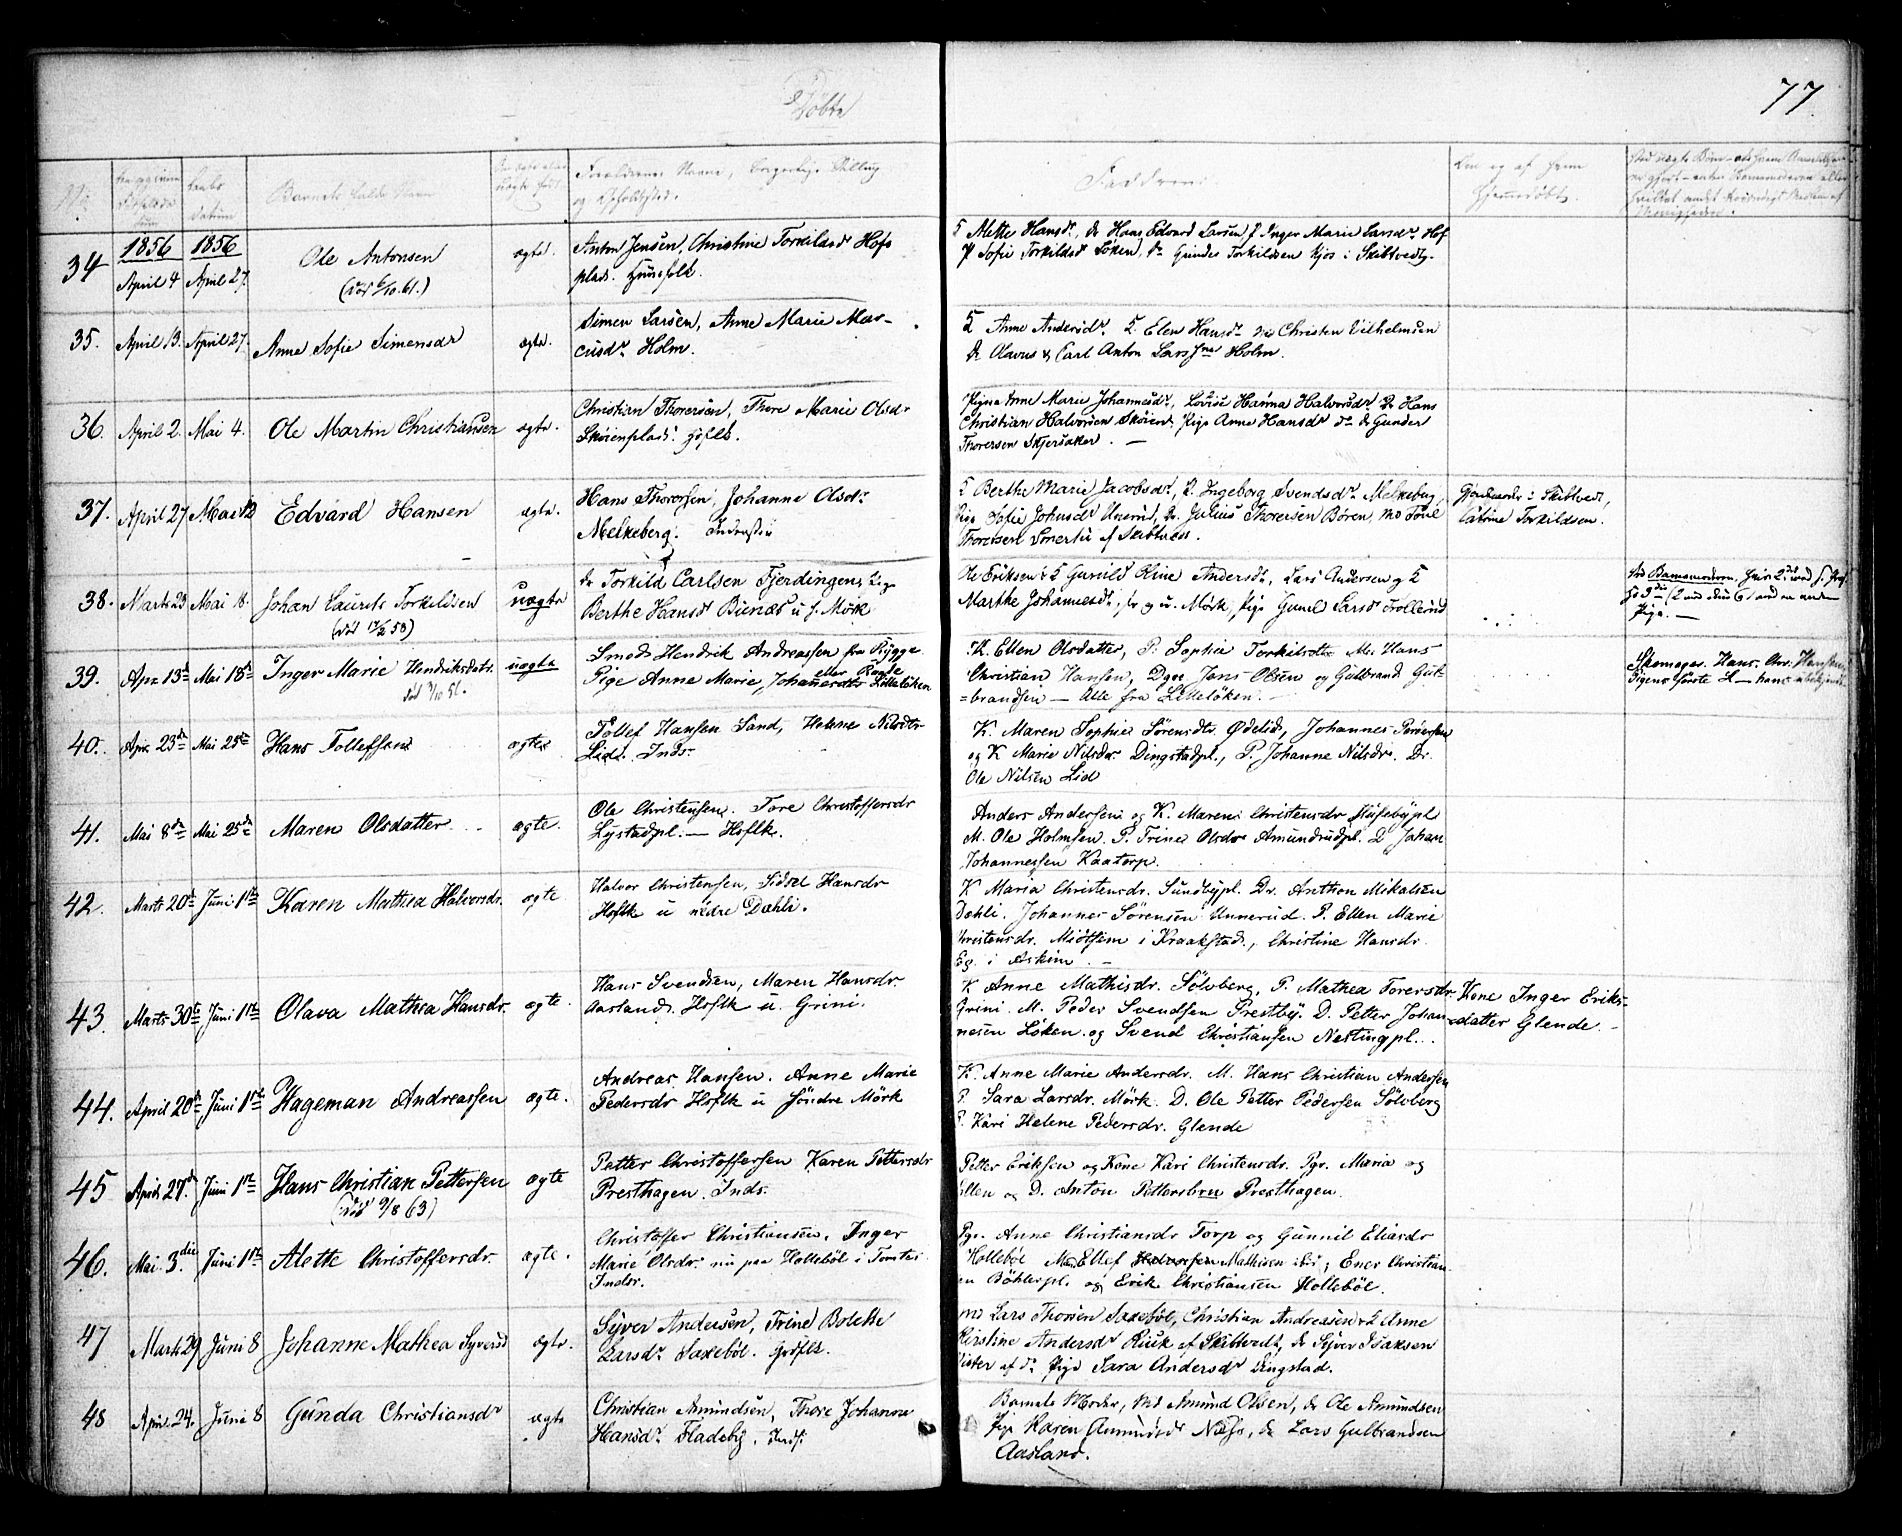 Døbte
77.
No.
Barnets fulde Navn
Forældrenes Navne, borgerlige Stilling
og Opholdssted.
Faddernes
Om og af hvem
hjemmedøbt.
34
1856
April 4
1856
April 27.
Ole Antonsen
(død 6/10.61.)
ægte.
Anton Jensen, Christine Torkildsdr Hofs
plads. Huusfolk.
F Mette Hansdr, Dr Hans Edvard Larsen, P Inger Marie Larsdr Hof
P Sofie Torkildsdr Løken, Dr Gunder Torkildsen Kjos i Skibtvedt.
35.
April 13.
April 27.
Anne Sofie Simensdr
ægte.
Simen Larsen, Anne Marie Mar-
cusdr Holm.
Anne Andersdr. Elen Hansdr Christen Vilhelmsen
Dr Olavus & Carl Anton Lars Sner Holm.
36.
April 2.
Mai 4.
Ole Martin Christiansen
ægte.
Christian Thoresen, Thore Marie Olsdr
Skøienplads.
Pigerne Anne Marie Johannesdr, Lovise Hanna Halvorsdr. Dr Hans
Christian Halvorsen Skøien. Pige Anne Hansdr Dr Gunder
Thoresen Skjersaker. —
37.
April 27
Mai 12
Edvard Hansen
ægte.
Hans Thoresen, Johanne Olsdr
Melkeberg. Inderstin
Berthe Marie Jacobsdr, P. Ingeborg Svendsdr Melkeberg,
Pige Sofie Johnsdr Unerud, Dr. Julius Thoresen Børen,
Thoresen af Skibtvedt.
Gjordemoder i Skibtvedt,
Catrine Torkildsen.
38.
Marts 23
Mai 18.
Johan Laurits Torkildsen
(død 17/2 58)
uægte
Dr Torkild Carlsen Fjerdingen, Pige
Berthe Hansdr Bunæs u. s. Mørk
Ole Eriksen & Gunild Kine Andersdr, Lars Andersen og
Marthe Johannesdr, Mørk, Pige Gunil Larsdr Trollerud
Barnemoderen.
Pige. —
39.
Apr. 13de
Mai 18de
Inger Marie Hendriksdatr.
uægte
Smeds. Hendrik Andreassen fra Rygge
Pige Anne Marie Johannesdtr eller Rande Lilleløken
K. Ellen Olsdatter, P. Sophie Torkilsdtr M. Hans
Christian Hansen, Dgr. Jens Olsen og Gulbrand Gul-
=brandsen — Alle fra Lilleløken. —
Skomager. Hans. Chr. Hansen
Pigens første
40.
Apr. 23de
Mai 25de
Hans Tollefsen
ægte
Tollef Hansen Sand, Helene Nilsdtr
Lid. Inds.
K. Maren Sophie Sørensdtr. Ødelid, Johannes
og K Marie Nilsdr. Dingstadpl., P. Johanne Nilsdr. Dr.
Ole Nilsen Lid
41.
Mai 8de
Mai 25de
Maren Olsdatter
ægte.
Ole Christensen. Tore Christoffersdr
Lystadpl. — Hsflk.
Anders Andersen og K. Maren Christensdr Husebypl
M. Ole Holmsen. P. Trine Olsdr Amundrudpl. D Johan
Johannessen Kaatorp.
42.
Marts 20de
Juni 1ste
Karen Mathea Halvorsdr.
ægte
Halvor Christensen, Sidsel Hansdr
Hsflk u nedre Dæhli.
K Maria Christensdr. Sundbypl. Dr. Anthon Mikalsen
Dæhli. Johannes Sørensen Unnerud. P. Ellen Marie
Christensdr. Midtsem i Kraakstad., Christine Hansdr.
Eg. i Askim. —
43.
Marts 30te
Juni 1ste
Olava Mathea Hansdr.
ægte.
Hans Svendsen, Maren Hansdr
Aasland. Hsflk u. Grini.
K Anne Mathisdr. Sølvberg, P. Mathea Toresdr.
Grini. M. Peder Svendsen Prestby. D. Petter Johan-
nesen Løken og Svend Christiansen Nestingpl...
Kone Inger Eriks-
datter Glende. —
44.
April 20de
Juni 1ste
Hageman Andreassen
ægte.
Andreas Hansen. Anne Marie
Pedersdr Hsflk u Søndre Mørk
K. Anne Marie Andersdr. M. Hans Christian Andersen
P. Sara Larsdr. Mørk. D. Ole Petter Pedersen Sølvberg
P. Kari Helene Pedersdr. Glende
45
April 27de
Juni 1ste
Hans Christian Pettersen
(død 9/8 63)
ægte
Petter Christoffersen Karen Pettersdr
Presthagen. Inds.
Petter Eriksen og Kone Kari Christensdr. Pgr. Maria og
Ellen og D. Anton Petterbrn Presthagen.
46.
Mai 3die
Juni 1ste
Alette Christoffersdr.
ægte.
Christoffer Christiansen, Inger
Marie Olsdr. nu paa Hollebøl i Tomter
Indsr.
Pgr. Anne Christiansdr Torp og Gunnil Eliasdr
Hollebøl M. Ellef Halvorsen Mathisen ibid; Ener Christian-
en Bøhlerpl. og Erik Christiansen Hollebøl.
47
Marts 29
Juni 8
Johanne Mathea Syversd
ægte.
Syver Andersen, Trine Bolette
Larsdr Saxebøl.
M Lars Thoresen Saxebøl, Christian Andreasen & Anne
Kirstine Andersdr Ruuk af Skibtvedt, Dr Syver Isaksen
Sister af Dr Pige Sara Andersdr Dingstad.
48
April 24.
Juni 8
Gunda Christiansdr
ægte
Christian Amundsen, Thore Johanne
Hansdr Fladeby. Inds.
Barnets Moder, Md Amund Olsen, Dr Ole Amundsen
Pige Karen Amundsdr Næss, Dr Lars Gulbrandsen
Aasland.